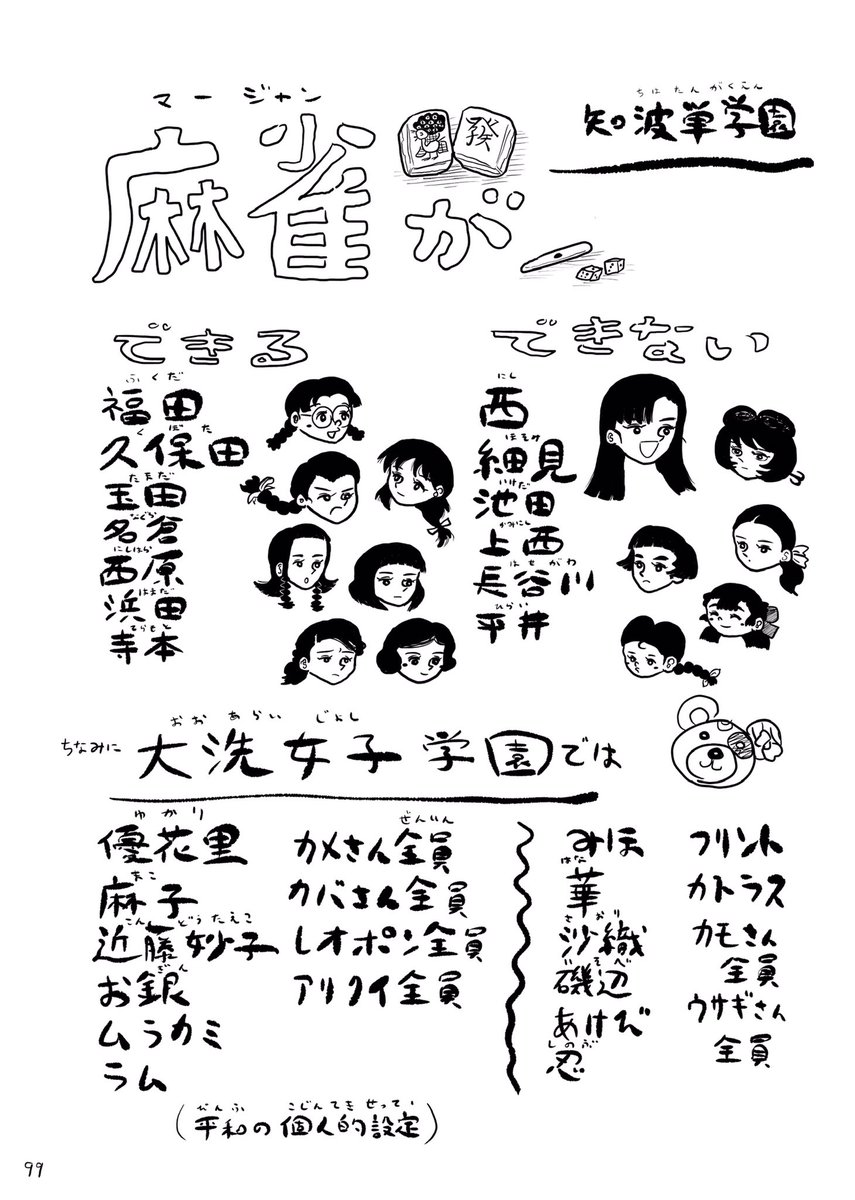 知波単学園
ちはたんがくえん
麻雀が
マージャン
發
できる
福田
ふくだ
久保田
くぼた
玉田
たまだ
名倉
なぐら
西原
にしはら
浜田
はまだ
寺本
てらもと
できない
西
にし
細見
ほそみ
池田
いけだ
上西
かみにし
長谷川
はせがわ
平井
ひらい
ちなみに大洗女子学園では
おおあらいじょし
優花里
ゆかり
麻子
まこ
近藤妙子
こんどうたえこ
お銀
ぎん
ムラカミ
ラム
カメさん全員
ぜんいん
カバさん全員
レオポン全員
アリクイ全員
みほ
華
はな
沙織
さおり
磯辺
いそべ
あけび
忍
しのぶ
フリント
カトラス
カモさん
全員
ウサギさん
全員
(平和の個人的設定)
かんふ こじんてきせってい
99